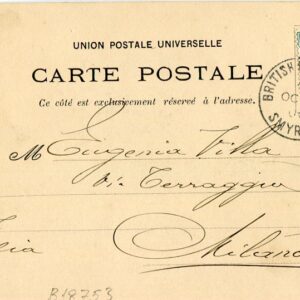 UNION POSTALE UNIVERSELLE
CARTE POSTALE
Ce côté est exclusivement réservé à l'adresse.
BRITISH
OC
SMYR
M Eugenia Villa
Via Terraggio
Milano
B18753